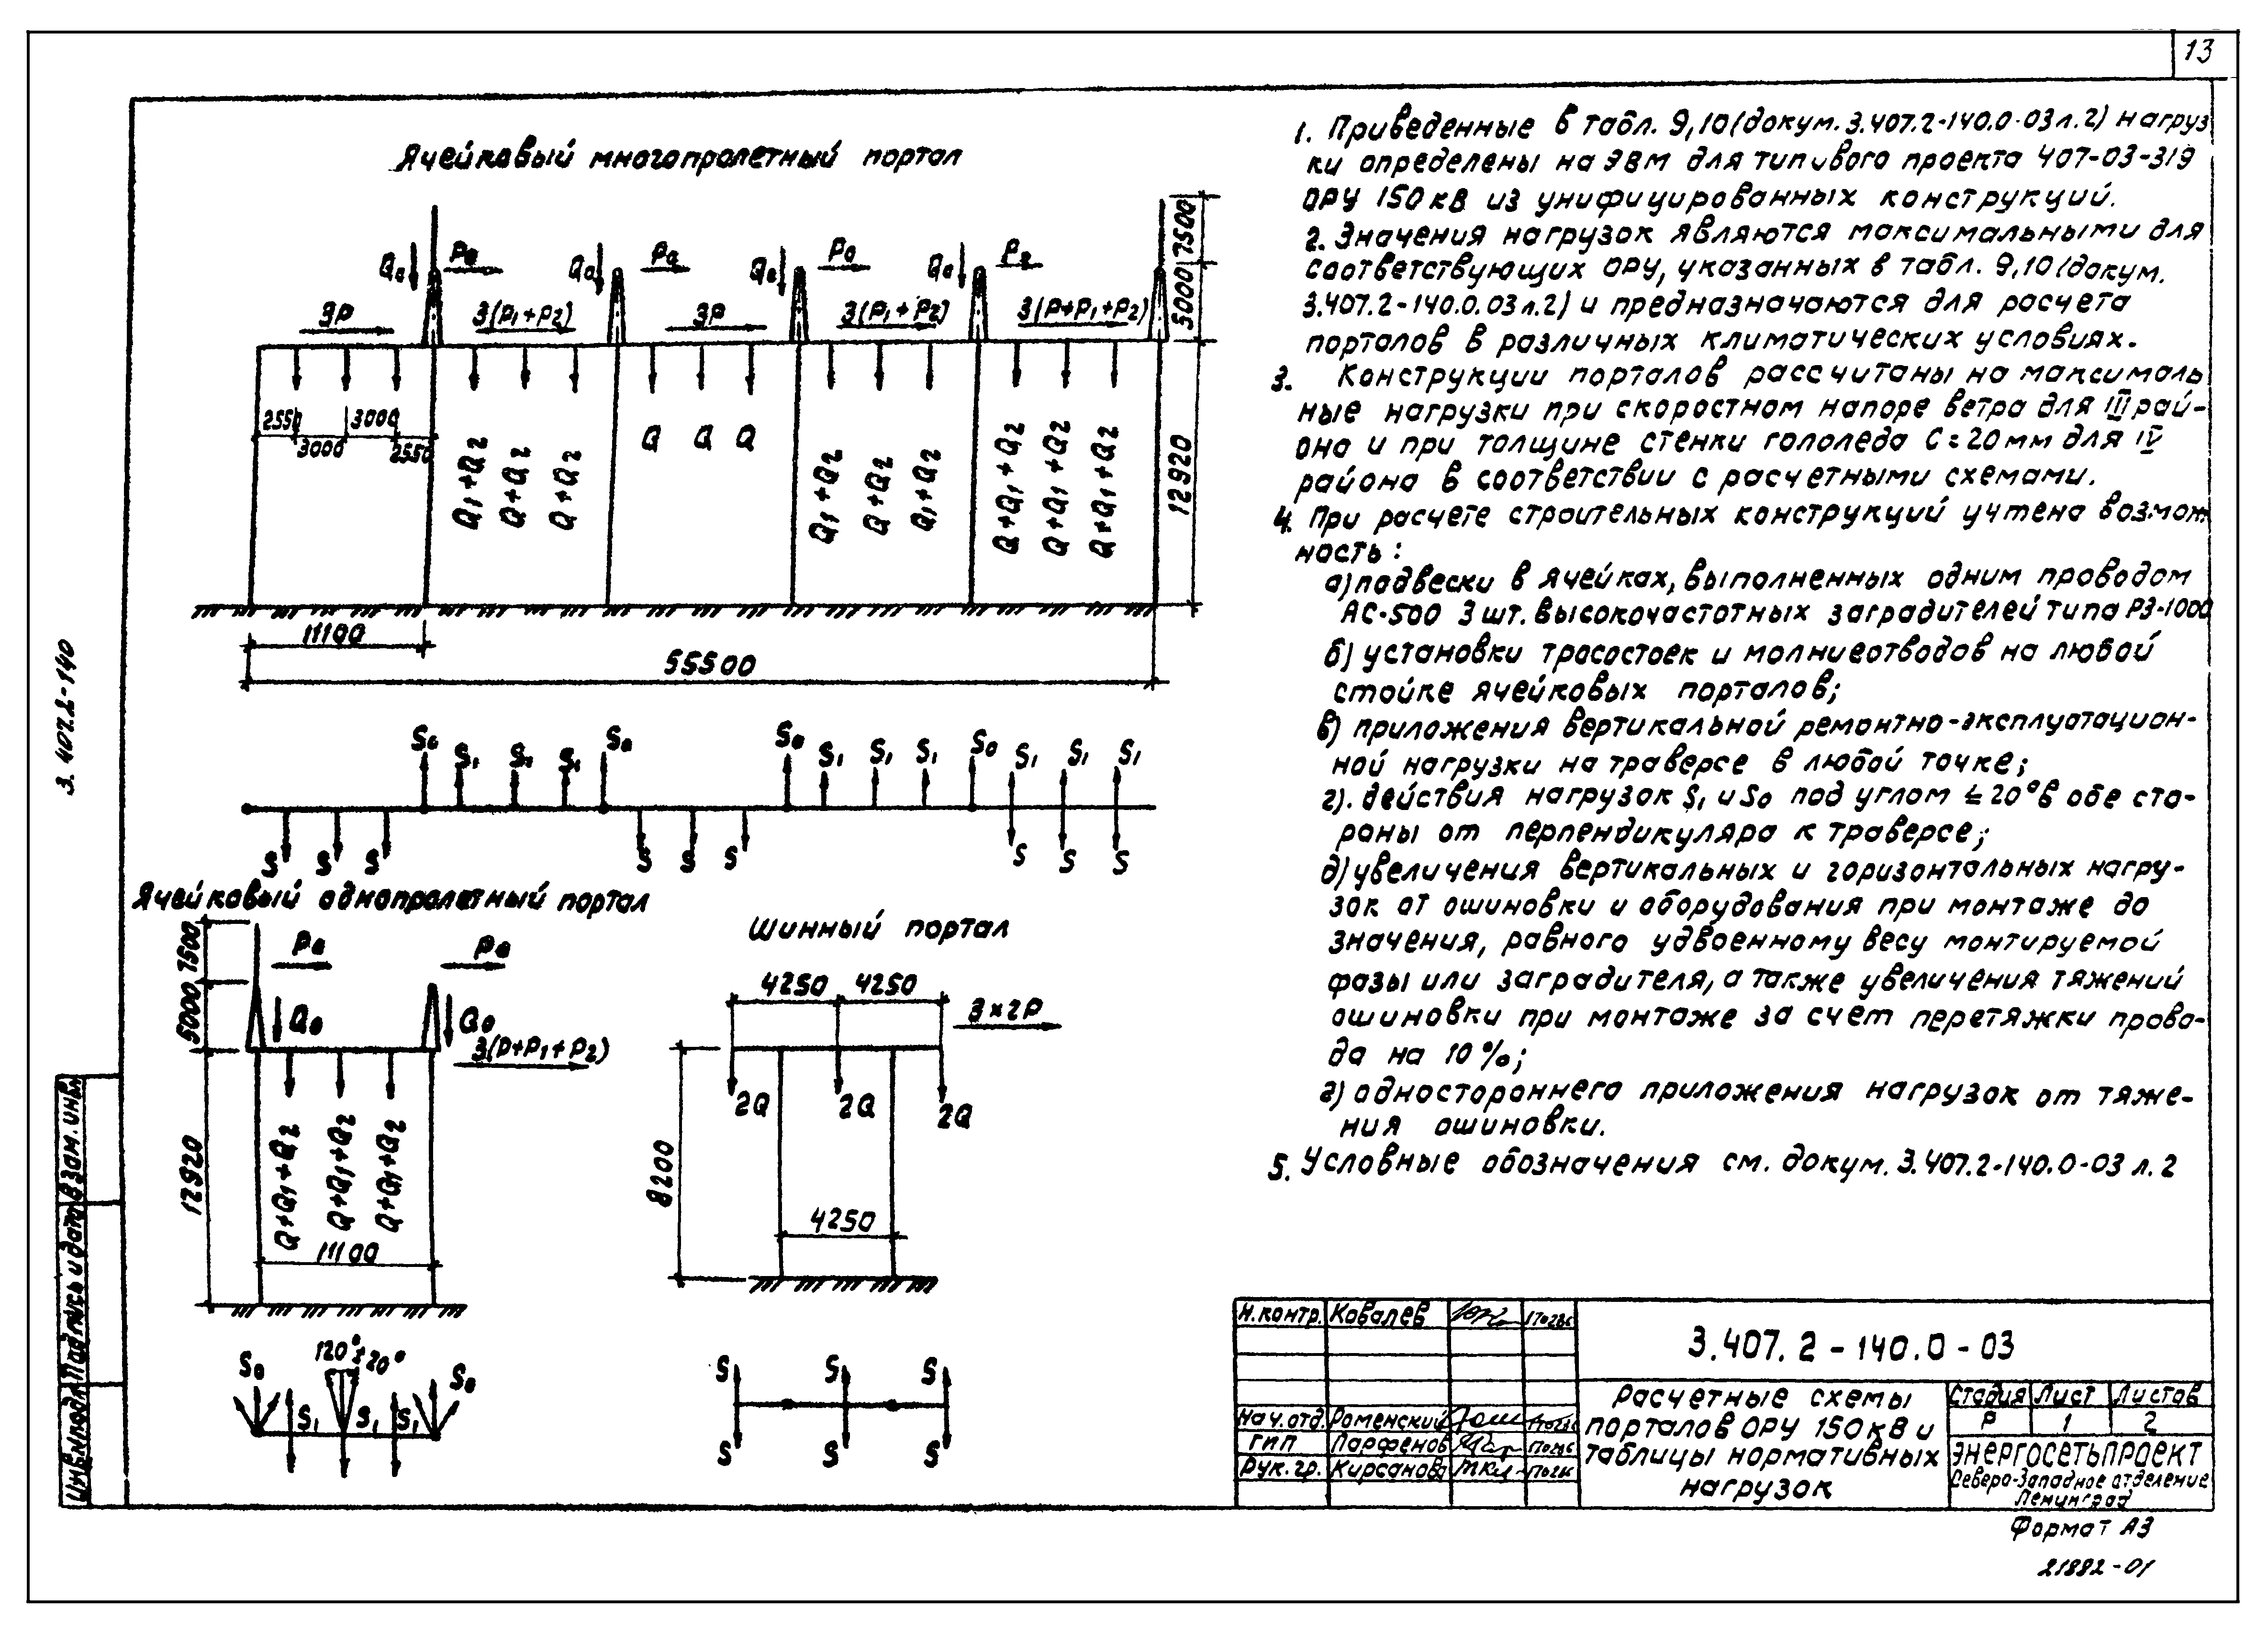 13
Ячейковый многопролетный портал
Qо Pо Qо Pо Qо Pо Qо
3P 3(P1+P2) 3P 3(P1+P2) 3(P+P1+P2)
7500
5000
12920
2550 3000 3000 2550
Q1+Q2 Q+Q2 Q+Q2
Q Q Q
Q1+Q2 Q+Q2 Q1+Q2
Q+Q1+Q2 Q+Q1+Q2 Q+Q1+Q2
11100
55500
Sо S1 S1 S1 Sо Sо S1 S1 S1 Sо S1 S1 S1
S S S S S S S S S
Ячейковый однопролетный портал
7500
5000
12920
Pо Pо
Qо Qо
3(P+P1+P2)
Q+Q1+Q2 Q+Q1+Q2 Q+Q1+Q2
11100
Sо 120° ±20° Sо
S1 S1 S1
Шинный портал
4250 4250
3×2P
2Q 2Q 2Q
8200
4250
S S S
S S S
1. Приведенные в табл. 9,10 (докум. 3.407.2-140.0-03 л.2) нагруз
ки определены на ЭВМ для типового проекта 407-03-319
ОРУ 150 кВ из унифицированных конструкций.
2. Значения нагрузок являются максимальными для
соответствующих ОРУ, указанных в табл. 9,10 (докум.
3.407.2-140.0.03 л.2) и предназначаются для расчета
порталов в различных климатических условиях.
3. Конструкции порталов рассчитаны на максималь
ные нагрузки при скоростном напоре ветра для III рай-
она и при толщине стенки гололеда С=20мм для IV
района в соответствии с расчетными схемами.
4. При расчете строительных конструкций учтена возмож
ность:
а) подвески в ячейках, выполненных одним проводом
АС-500 3 шт. высокочастотных заградителей типа РЗ-1000
б) установки тросостоек и молниеотводов на любой
стойке ячейковых порталов;
в) приложения вертикальной ремонтно-эксплуатацион-
ной нагрузки на траверсе в любой точке;
г). действия нагрузок S1 и Sо под углом ≤ 20° в обе сто-
роны от перпендикуляра к траверсе;
д) увеличения вертикальных и горизонтальных нагру-
зок от ошиновки и оборудования при монтаже до
значения, равного удвоенному весу монтируемой
фазы или заградителя, а также увеличения тяжений
ошиновки при монтаже за счет перетяжки прово-
да на 10%;
г) одностороннего приложения нагрузок от тяже-
ния ошиновки.
5. Условные обозначения см. докум. 3.407.2-140.0-03 л. 2
3.407.2-140
Взам. инв.
Подпись и дата
Инв.№ подл.
Н.контр. Ковалев
Нач.отд. Роменский
ГИП Парфенов
Рук. гр. Кирсанова
3.407.2-140.0-03
Расчетные схемы
порталов ОРУ 150 кВ и
таблицы нормативных
нагрузок
Стадия Лист Листов
Р 1 2
ЭНЕРГОСЕТЬПРОЕКТ
Северо-Западное отделение
Ленинград
Формат А3
21882-01